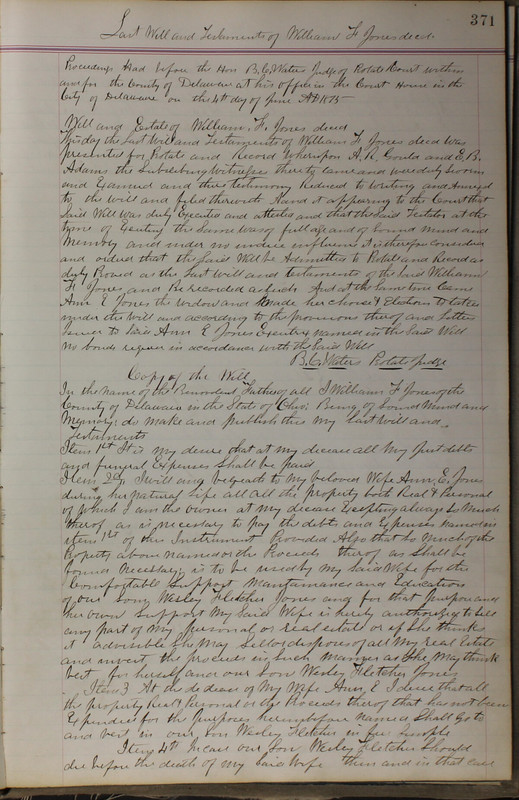 371
Last Will and Testaments of William F Jones decd.
Proceedings Had before the Hon B.C. Waters Judge of Probate Court within
and for the County of Delaware at his office in the Court House in the
City of Delaware on the 4th day of June AD 1875
Will and Estate of William. F. Jones decd
This day the Last Will and Testaments of William F Jones decd was
presented for Probate and Record Whereupon A. R. Gould and E. B.
Adams the Subscribing Witnesses thereto came and were duly sworn
and Examined and their testimony Reduced to writing and annexed
to the will and filed therewith And it appearing to the Court that
Said Will was duly Executed and attested and that the Said Testator at the
time of Executing the Same was of full age and of Sound Mind and
Memory and under no undue influence It is therefore considered
and ordered that the Said Will be Admitted to Probate and Record as
duly Proved as the Last Will and testaments of the Said William
F Jones and Be recorded as Such And at the Same time Came
Ann E Jones the widow and made her choice & Elections to take
under the Will and according to the provisions thereof and Letters
issued to Said Ann E Jones Executrix named in the Said Will
no bonds required in accordance with the Said Will
B. C. Waters Probate Judge
Copy of the Will
In the Name of the Benevolent Father of all I William F Jones of the
County of Delaware in the State of Ohio Being of Sound Mind and
Memory do make and publish this my Last Will and
Testaments
Item 1st It is my desire that at my decease all My Just debts
and funeral Expenses Shall be paid
Item 2d, I will and bequeath to My beloved Wife Ann, E. Jones
during her natural Life all All the property both Real & Personal
of which I am the owner at my decease Excepting always So Much
thereof as is necessary to pay the debts and Expenses named in
item 1st of this Instrument Provided Also that So Much of the
Property above named or the Proceeds thereof as Shall be
found Necessary is to be used by My Said Wife for the
Comfortable Support Maintainance and Education
of our Son Wesley Fletcher Jones and for that purpose and
her own Support My Said Wife is hereby authorized to Sell
any part of My personal or real estate or if She thinks
it advisable She May Sell or dispose of all My Real Estate
and invest the proceeds in Such Manner as She May think
best for herself and our Son Wesley Fletcher Jones
Item 3 At the decease of My Wife Ann, E I desire that all
the property Real & Personal or the Proceeds thereof that has not been
Expended for the purposes hereinbefore named Shall go to
and Vest in our Son Wesley Fletcher in fee Simple
Item 4th In case our Son Wesley Fletcher Should
die before the death of my Said Wife then and in that case